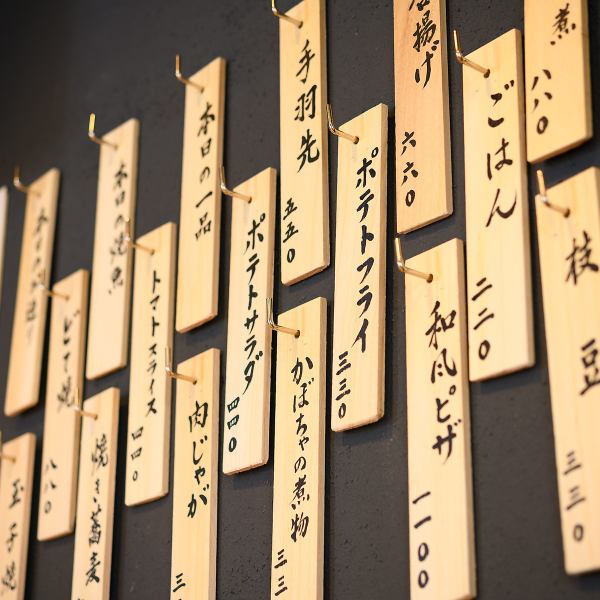 煮
八八〇
枝豆
三三〇
ごはん
二二〇
唐揚げ
六六〇
和風ピザ
一一〇〇
ポテトフライ
三三〇
手羽先
五五〇
かぼちゃの煮物
三三
ポテトサラダ
四四〇
本日の一品
肉じゃが
三
トマトスライス
四四〇
本日の焼魚
焼き蕎麦
八八〇
本日の
玉子焼